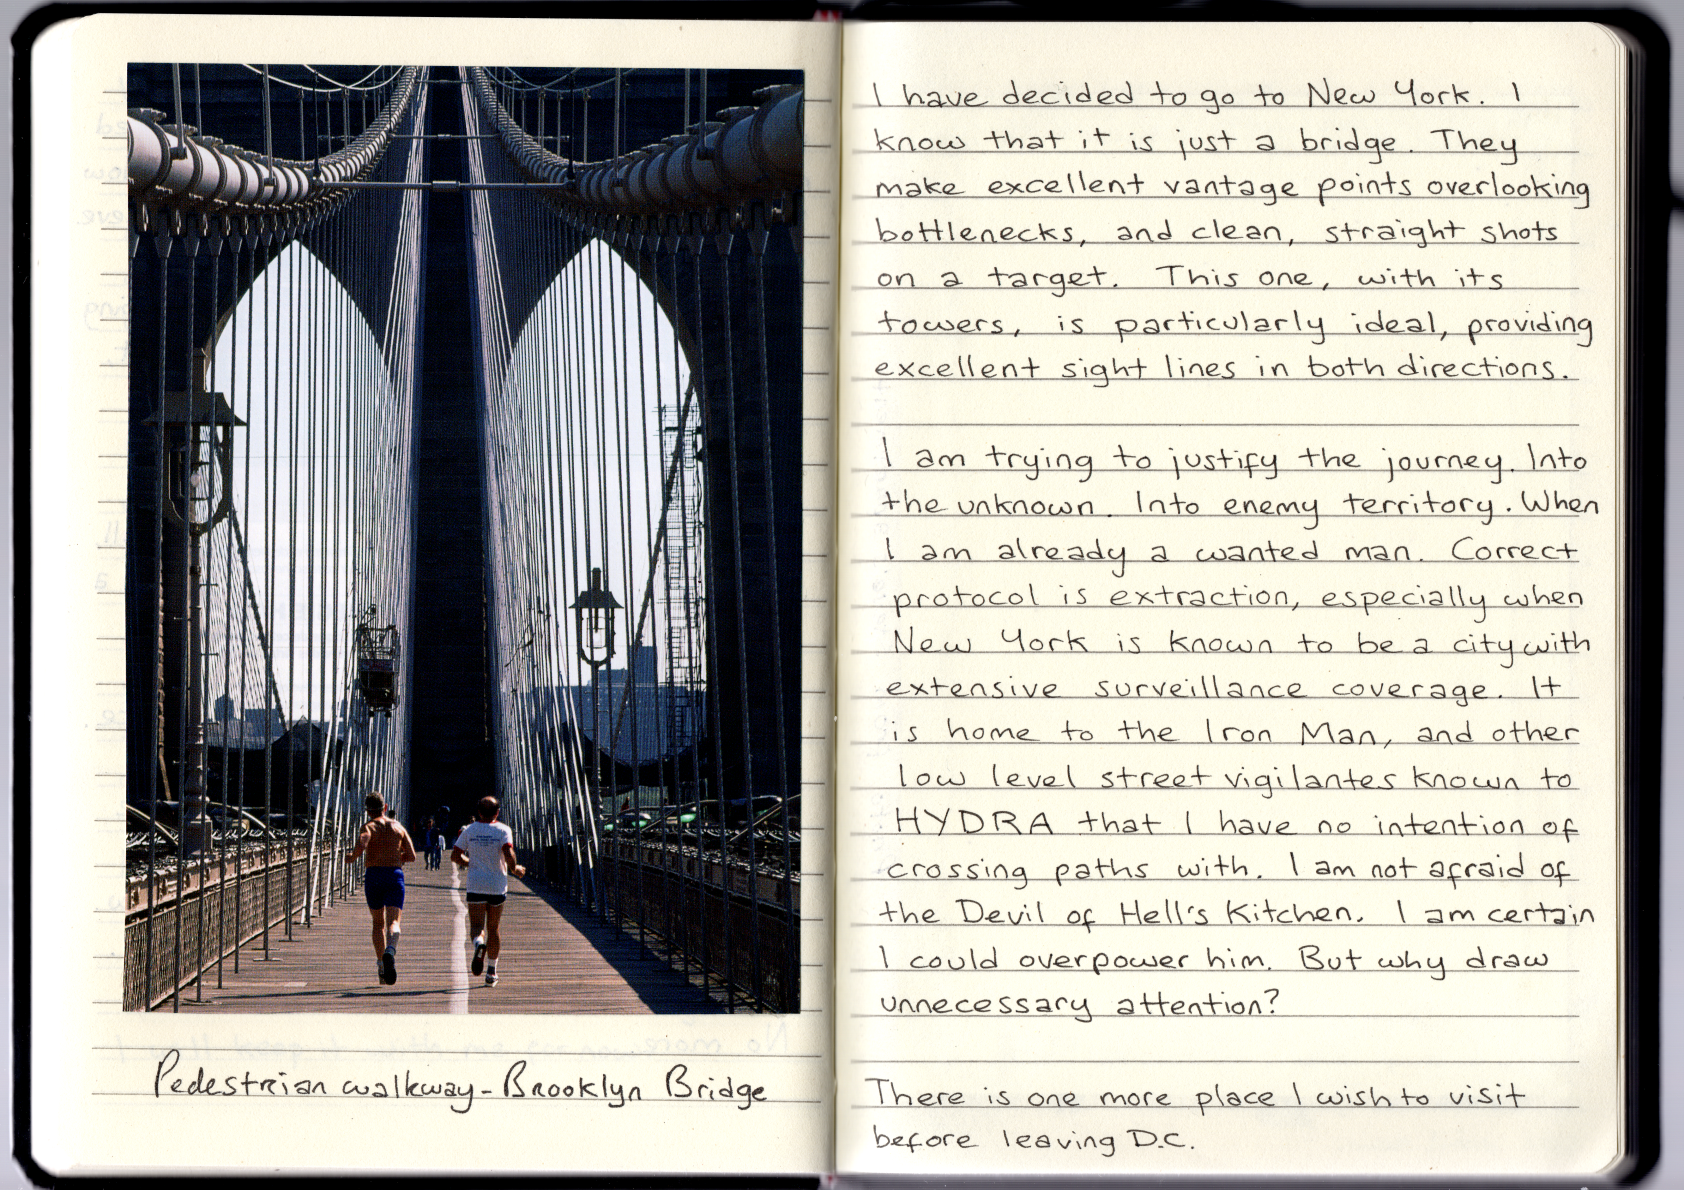 Pedestrian walkway - Brooklyn Bridge
I have decided to go to New York. I
know that it is just a bridge. They
make excellent vantage points overlooking
bottlenecks, and clean, straight shots
on a target. This one, with its
towers, is particularly ideal, providing
excellent sight lines in both directions.
I am trying to justify the journey. Into
the unknown. Into enemy territory. When
I am already a wanted man. Correct
protocol is extraction, especially when
New York is known to be a city with
extensive surveillance coverage. It
is home to the Iron Man, and other
low level street vigilantes known to
HYDRA that I have no intention of
crossing paths with. I am not afraid of
the Devil of Hell's Kitchen. I am certain
I could overpower him. But why draw
unnecessary attention?
There is one more place I wish to visit
before leaving D.C.